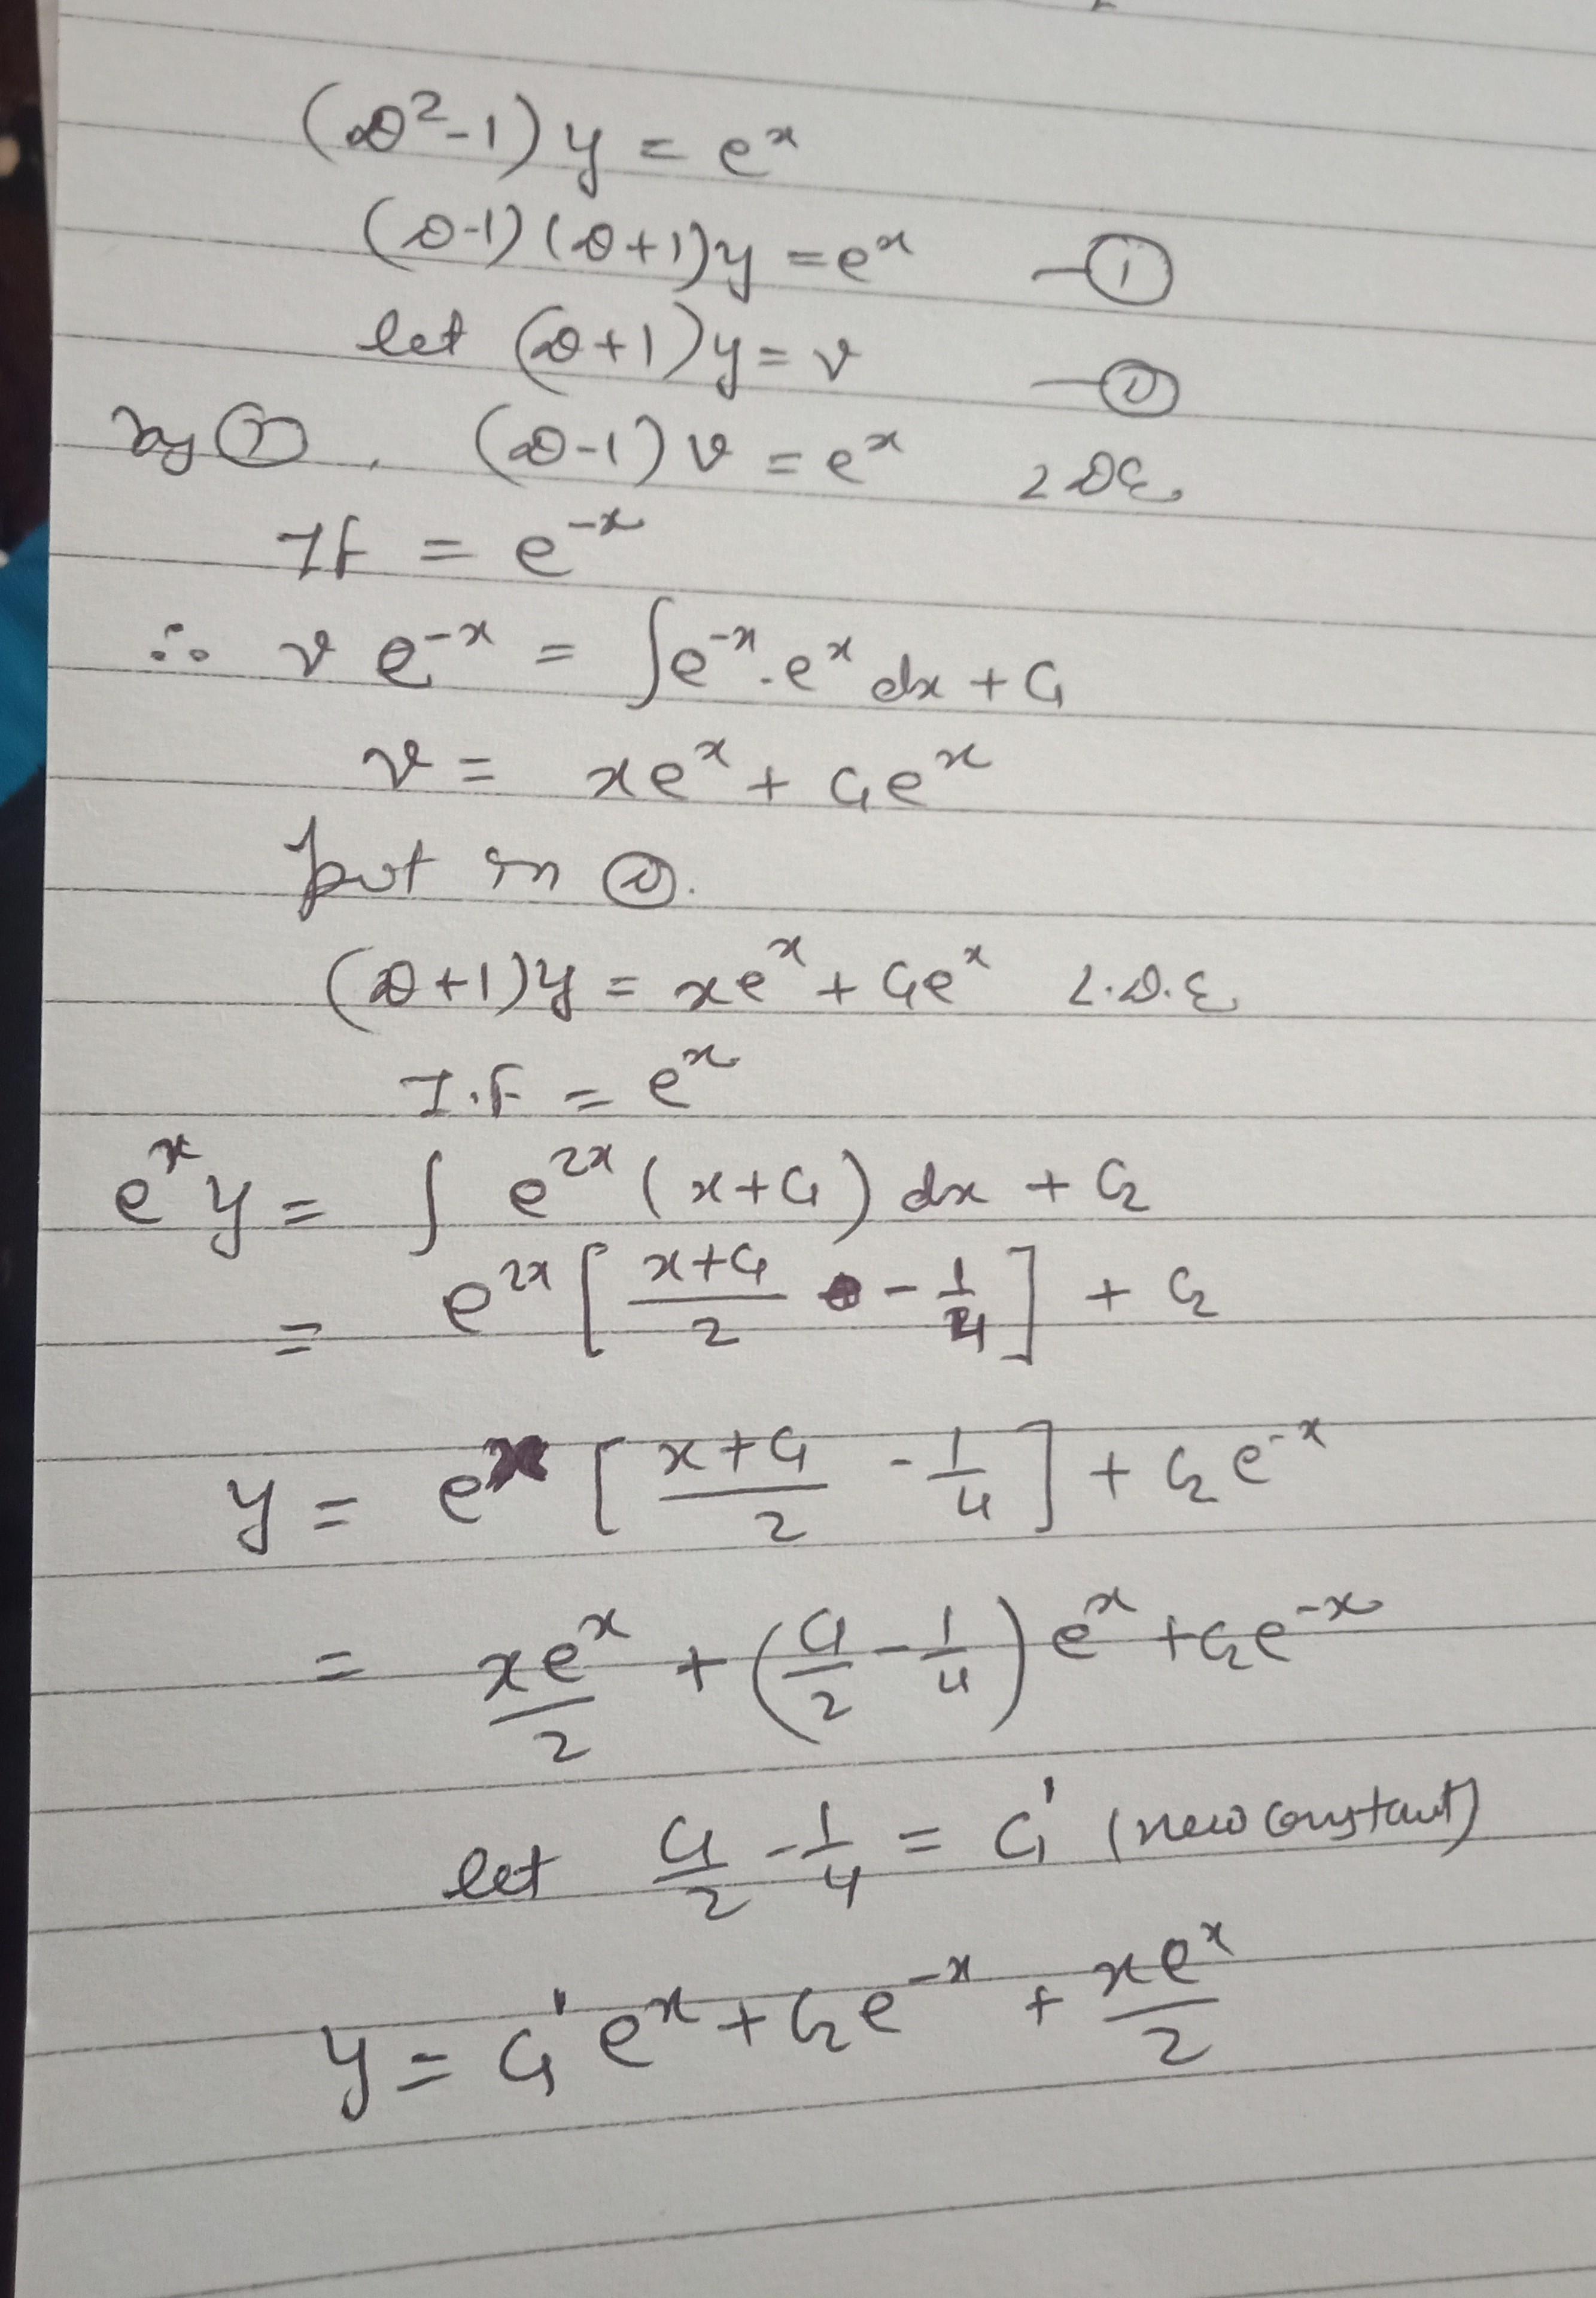 (D²-1)y = eˣ
(D-1)(D+1)y = eˣ —①
let (D+1)y = v —②
by ①, (D-1)v = eˣ LDE
IF = e⁻ˣ
∴ v e⁻ˣ = ∫e⁻ˣ.eˣ dx + C₁
v = xeˣ + C₁eˣ
put in ②.
(D+1)y = xeˣ + C₁eˣ L.D.E
I.F = eˣ
eˣy = ∫ e²ˣ (x+C₁) dx + C₂
= e²ˣ [ (x+C₁)/2 - 1/4 ] + C₂
y = eˣ [ (x+C₁)/2 - 1/4 ] + C₂e⁻ˣ
= xeˣ/2 + (C₁/2 - 1/4) eˣ + C₂e⁻ˣ
let C₁/2 - 1/4 = C₁' (new constant)
y = C₁'eˣ + C₂e⁻ˣ + xeˣ/2